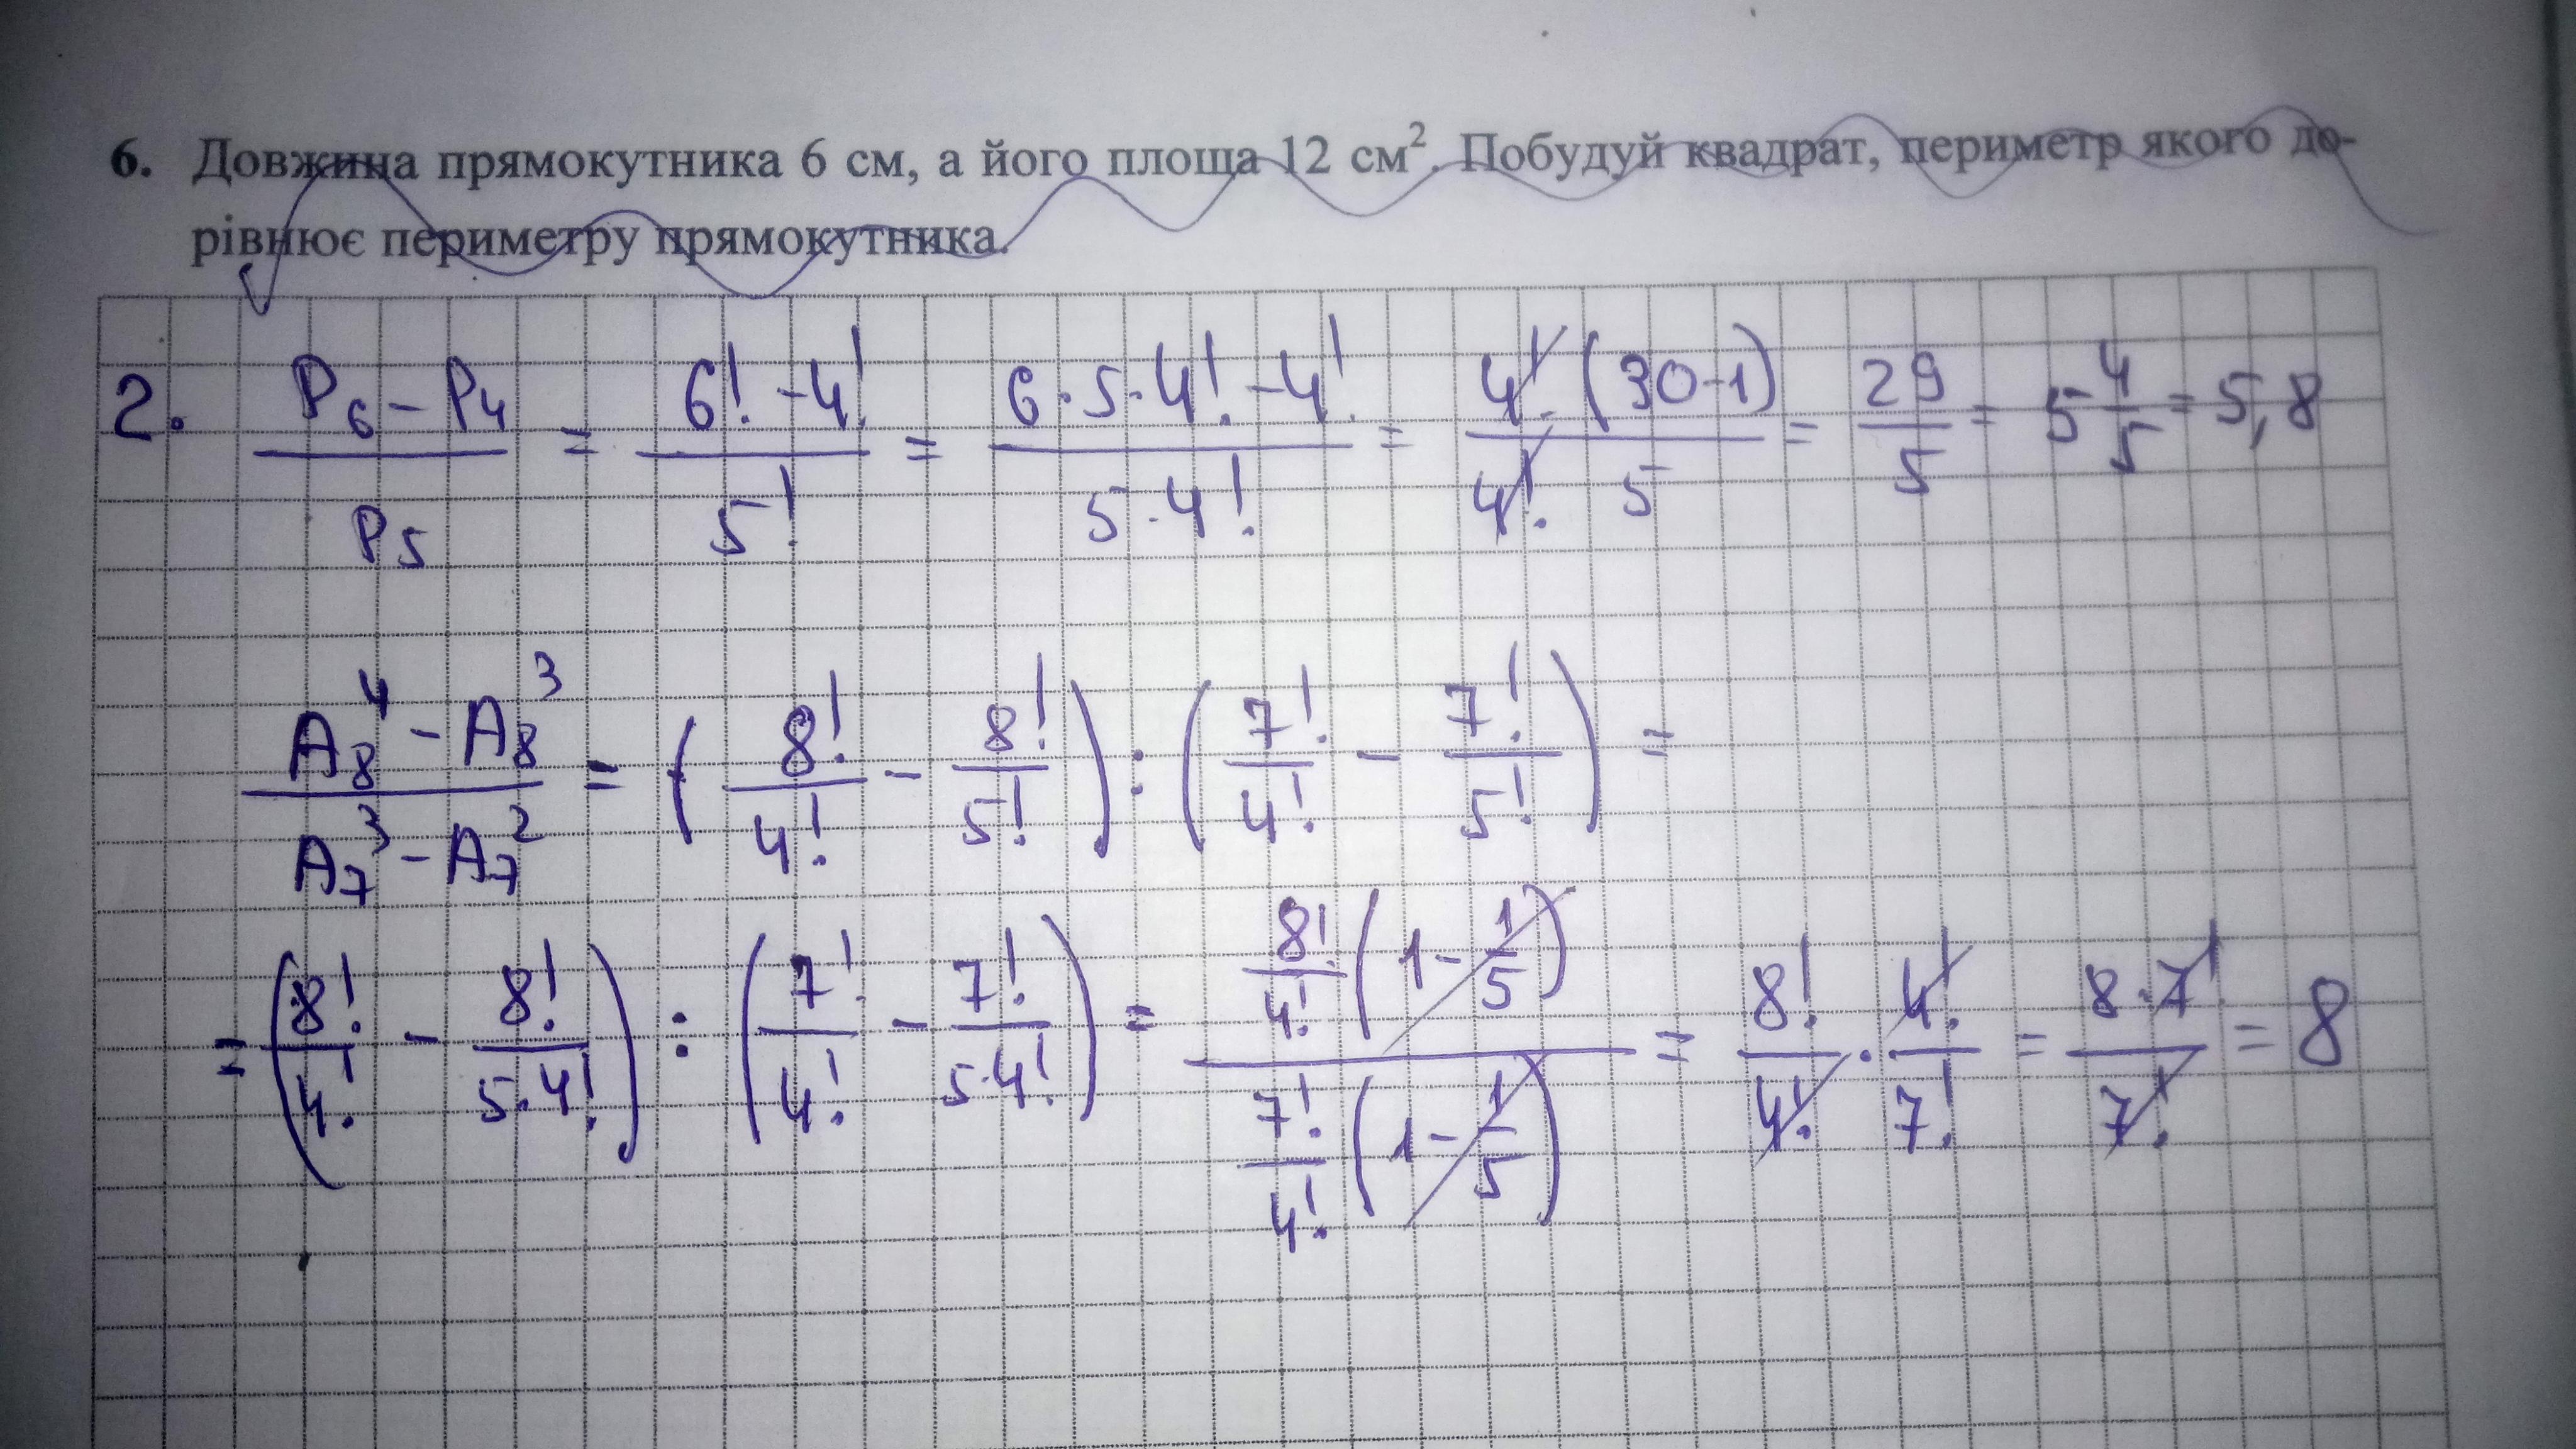 6. Довжина прямокутника 6 см, а його площа 12 см². Побудуй квадрат, периметр якого до-
рівнює периметру прямокутника.
2. (P₆ - P₄)/P₅ = (6! - 4!)/5! = (6·5·4! - 4!)/(5·4!) = (4!(30-1))/(4! 5) = 29/5 = 5 4/5 = 5,8
(A₈⁴ - A₈³)/(A₇³ - A₇²) = (8!/4! - 8!/5!) : (7!/4! - 7!/5!) =
= (8!/4! - 8!/(5·4!)) : (7!/4! - 7!/(5·4!)) = (8!/4! (1 - 1/5))/(7!/4! (1 - 1/5)) = 8!/4! · 4!/7! = (8·7!)/7! = 8